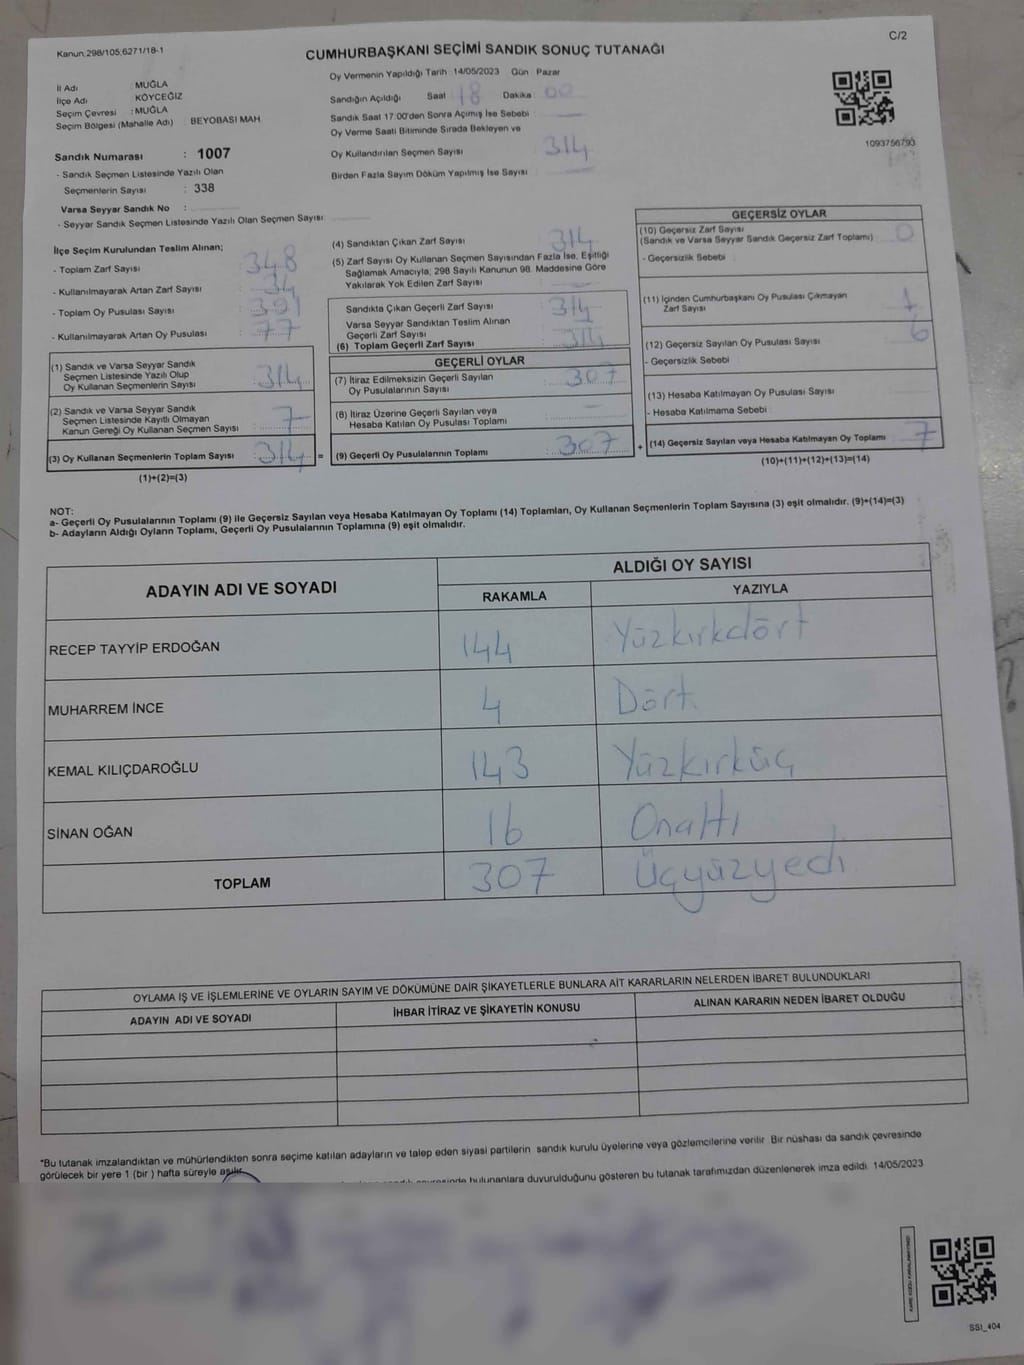 Kanun 298/105,6271/18-1
C/2
CUMHURBAŞKANI SEÇİMİ SANDIK SONUÇ TUTANAĞI
İl Adı : MUĞLA
İlçe Adı KÖYCEĞİZ
Seçim Çevresi : MUĞLA
Seçim Bölgesi (Mahalle Adı) : BEYOBASI MAH
Sandık Numarası : 1007
- Sandık Seçmen Listesinde Yazılı Olan
Seçmenlerin Sayısı : 338
Varsa Seyyar Sandık No :
- Seyyar Sandık Seçmen Listesinde Yazılı Olan Seçmen Sayısı:
Oy Vermenin Yapıldığı Tarih 14/05/2023 Gün Pazar
Sandığın Açıldığı Saat 18 Dakika 00
Sandık Saat 17:00'den Sonra Açımış İse Sebebi
Oy Verme Saati Bitiminde Sırada Bekleyen ve
Oy Kullandırılan Seçmen Sayısı 314
Birden Fazla Sayım Döküm Yapılmış İse Sayısı
1093756793
İlçe Seçim Kurulundan Teslim Alınan;
- Toplam Zarf Sayısı 348
- Kullanılmayarak Artan Zarf Sayısı 34
- Toplam Oy Pusulası Sayısı 391
- Kullanılmayarak Artan Oy Pusulası 77
(1) Sandık ve Varsa Seyyar Sandık
Seçmen Listesinde Yazılı Olup
Oy Kullanan Seçmenlerin Sayısı 314
(2) Sandık ve Varsa Seyyar Sandık
Seçmen Listesinde Kayıtlı Olmayan
Kanun Gereği Oy Kullanan Seçmen Sayısı 7
(3) Oy Kullanan Seçmenlerin Toplam Sayısı 314 =
(1)+(2)=(3)
(4) Sandıktan Çıkan Zarf Sayısı 314
(5) Zarf Sayısı Oy Kullanan Seçmen Sayısından Fazla İse, Eşitliği
Sağlamak Amacıyla; 298 Sayılı Kanunun 98. Maddesine Göre
Yakılarak Yok Edilen Zarf Sayısı
Sandıkta Çıkan Geçerli Zarf Sayısı 314
Varsa Seyyar Sandıktan Teslim Alınan
Geçerli Zarf Sayısı
(6) Toplam Geçerli Zarf Sayısı 314
GEÇERLİ OYLAR
(7) İtiraz Edilmeksizin Geçerli Sayılan
Oy Pusulalarının Sayısı 307
(8) İtiraz Üzerine Geçerli Sayılan veya
Hesaba Katılan Oy Pusulası Toplamı —
(9) Geçerli Oy Pusulalarının Toplamı 307 +
GEÇERSİZ OYLAR
(10) Geçersiz Zarf Sayısı
(Sandık ve Varsa Seyyar Sandık Geçersiz Zarf Toplamı) 0
- Geçersizlik Sebebi
(11) İçinden Cumhurbaşkanı Oy Pusulası Çıkmayan
Zarf Sayısı 1
(12) Geçersiz Sayılan Oy Pusulası Sayısı 6
- Geçersizlik Sebebi
(13) Hesaba Katılmayan Oy Pusulası Sayısı
- Hesaba Katılmama Sebebi
(14) Geçersiz Sayılan veya Hesaba Katılmayan Oy Toplamı 7
(10)+(11)+(12)+(13)=(14)
NOT:
a- Geçerli Oy Pusulalarının Toplamı (9) ile Geçersiz Sayılan veya Hesaba Katılmayan Oy Toplamı (14) Toplamları, Oy Kullanan Seçmenlerin Toplam Sayısına (3) eşit olmalıdır. (9)+(14)=(3)
b- Adayların Aldığı Oyların Toplamı, Geçerli Oy Pusulalarının Toplamına (9) eşit olmalıdır.
ADAYIN ADI VE SOYADI
ALDIĞI OY SAYISI
RAKAMLA YAZIYLA
RECEP TAYYİP ERDOĞAN 144 Yüzkırkdört
MUHARREM İNCE 4 Dört
KEMAL KILIÇDAROĞLU 143 Yüzkırküç
SİNAN OĞAN 16 Onaltı
TOPLAM 307 Üçyüzyedi
OYLAMA İŞ VE İŞLEMLERİNE VE OYLARIN SAYIM VE DÖKÜMÜNE DAİR ŞİKAYETLERLE BUNLARA AİT KARARLARIN NELERDEN İBARET BULUNDUKLARI
ADAYIN ADI VE SOYADI İHBAR İTİRAZ VE ŞİKAYETİN KONUSU ALINAN KARARIN NEDEN İBARET OLDUĞU
*Bu tutanak imzalandıktan ve mühürlendikten sonra seçime katılan adayların ve talep eden siyasi partilerin sandık kurulu üyelerine veya gözlemcilerine verilir Bir nüshası da sandık çevresinde
görülecek bir yere 1 (bir) hafta süreyle asılır.
bulunanlara duyurulduğunu gösteren bu tutanak tarafımızdan düzenlenerek imza edildi. 14/05/2023
SSI_404